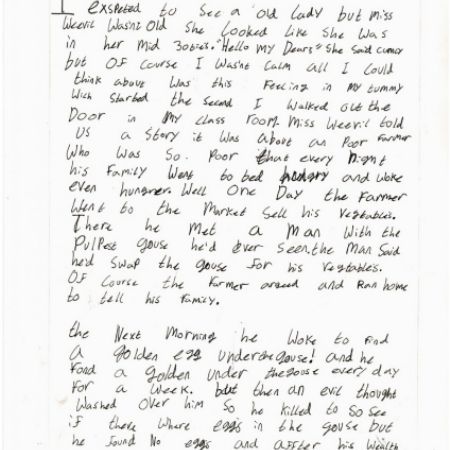 I exspeted to see a old lady but miss
Weevil Wasn't Old She Looked Like She Was
in her mid 30ties. "Hello My Dears" She Said
but Of Course I Wasn't Calm all I Could
think about Was this Feeling in My tummy
Wich Started the Second I Walked out the
Door in My Class room. Miss Weevil told
US a Story it Was about an Poor Farmer
Who Was So. Poor that every Night
his Family Went to bed hungry and Woke
even hungrer. Well One Day the Farmer
Went to the Market Sell his Vegtables.
There he Met a Man With the
Pulpest gouse he'd ever Seen. the Man Said
he'd Swap the gouse For his Vegtables.
Of Course the Farmer areed and Ran home
to tell his Family.
the Next Morning he Woke to Find
A golden egg under the gouse! and he
Fond a golden under the gouse every day
For a Week. but then an evil thought
Washed Over him So he killed to So See
if there Where eggs in the gouse but
he Found No eggs and affter his Wealth